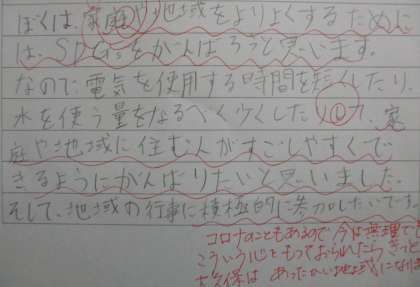 ぼくは、家庭や地域をよりよくするために
は、SDGsをがんばろうと思います。
なので、電気を使用する時間を短くしたり、
水を使う量をなるべく少くしたり、家
庭や地域に住む人がすごしやすくで
きるようにがんばりたいと思いました。
そして、地域の行事に積極的に参加したいです。
コロナのこともあるので今は無理でも
こういう心をもっておられたらきっと
大久保は あったかい地域になりま